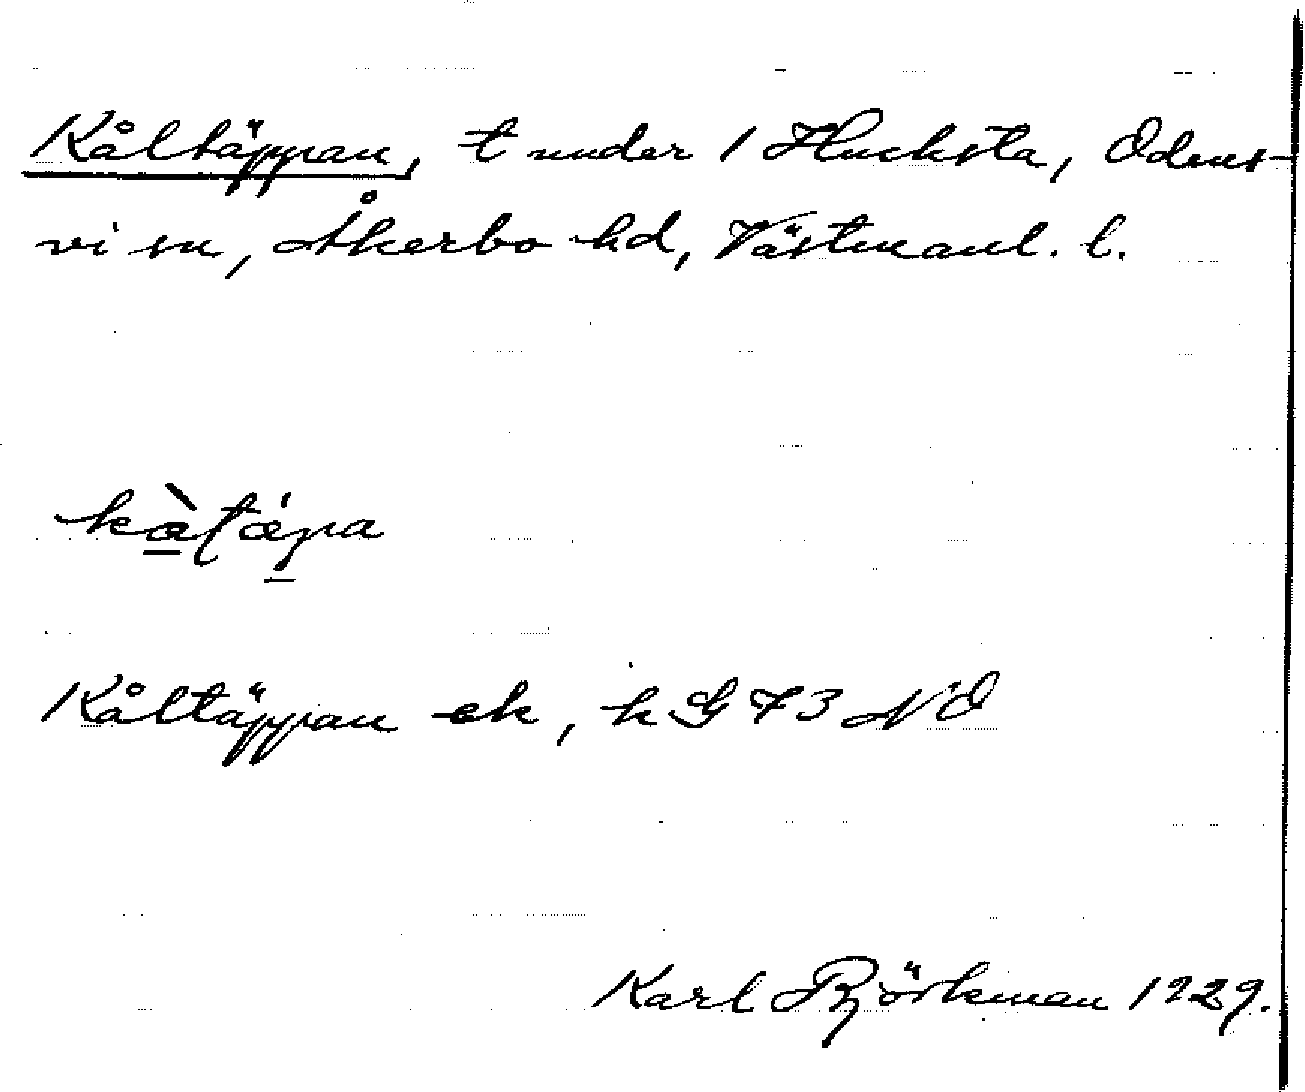 Kåltäppan, t under 1 Hucksta, Odens-
vi sn, Åkerbo hd, Västmanl. l.
Kåltäppan ek, k G 73 NO
Karl Björkman 1929.